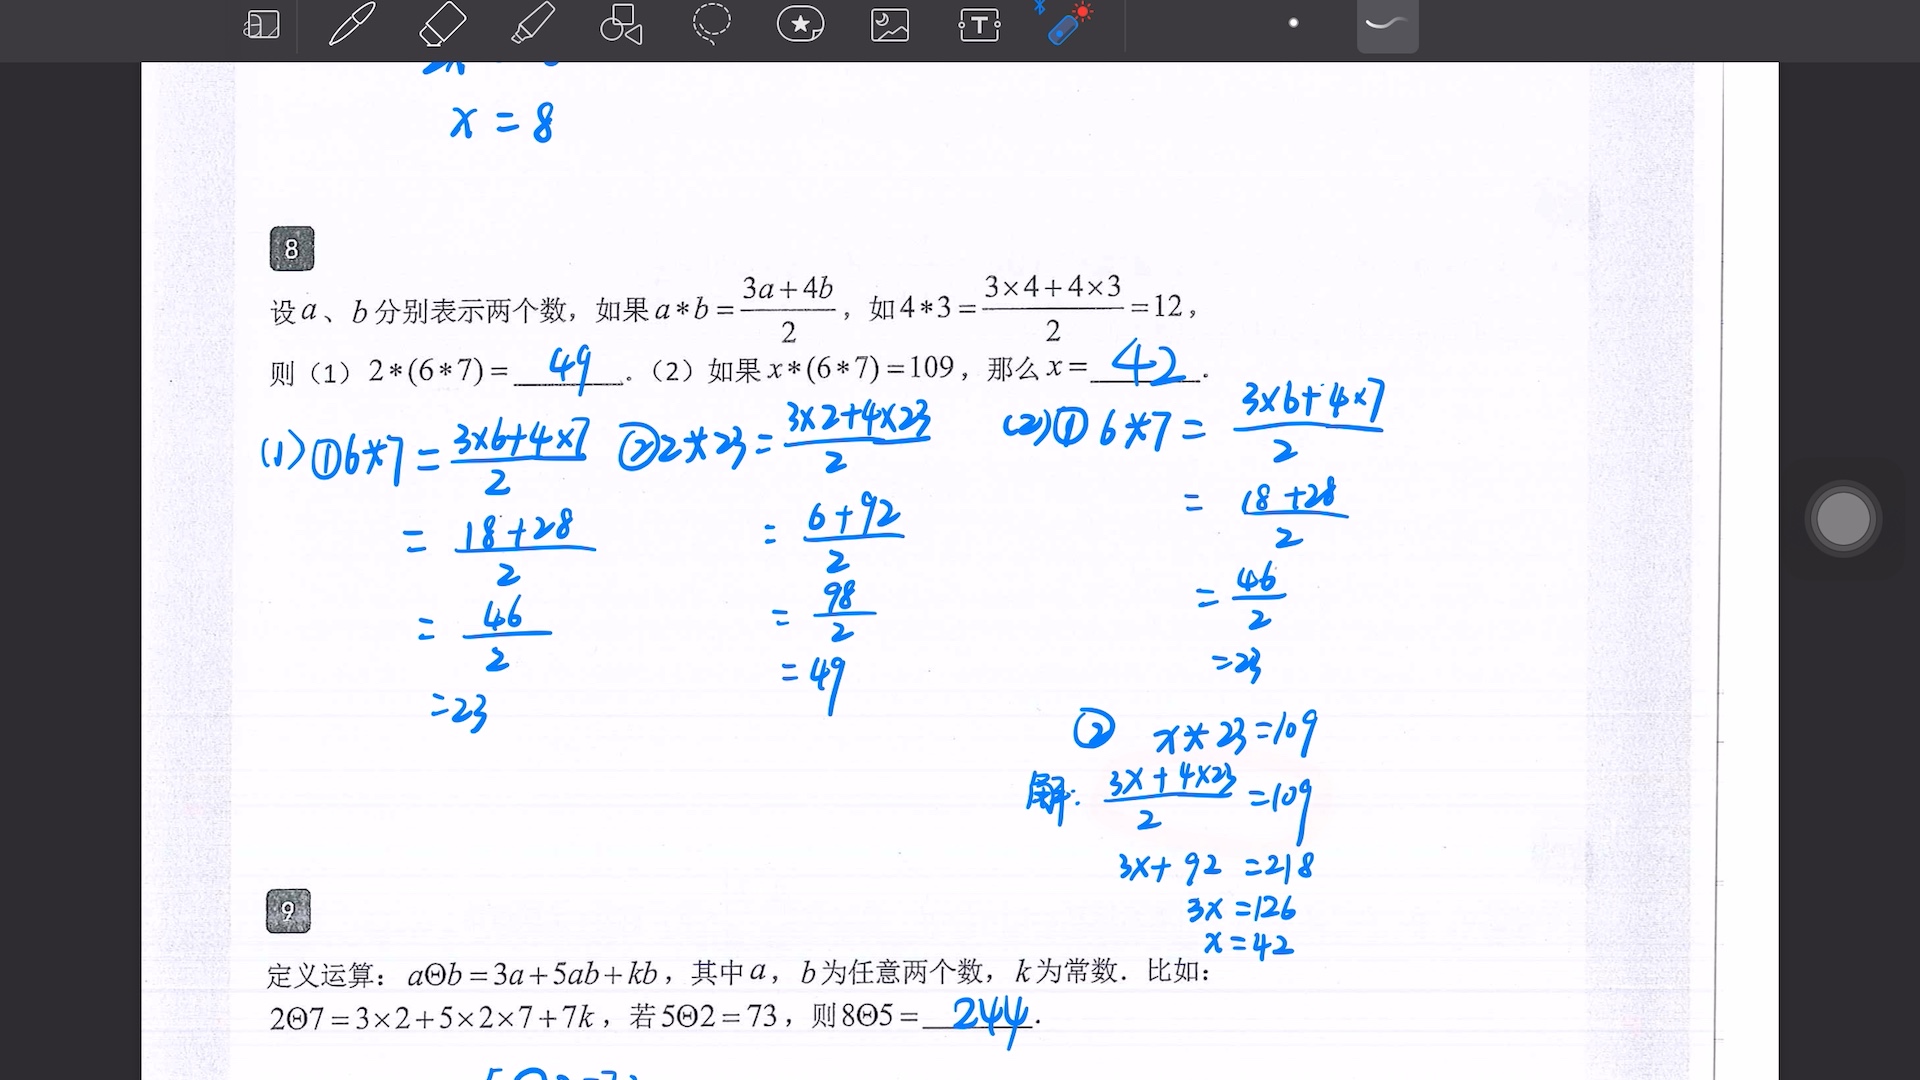 x = 8
8
设a、b分别表示两个数，如果a*b=(3a+4b)/2，如4*3=(3×4+4×3)/2=12，
则（1）2*(6*7)= 49 .（2）如果x*(6*7)=109，那么x= 42 .
(1) ①6*7 = (3×6+4×7)/2
= (18+28)/2
= 46/2
=23
②2*23 = (3×2+4×23)/2
= (6+92)/2
= 98/2
= 49
(2)① 6*7 = (3×6+4×7)/2
= (18+28)/2
= 46/2
=23
② x*23=109
解: (3x+4×23)/2 =109
3x+92 =218
3x =126
x =42
9
定义运算：aΘb=3a+5ab+kb，其中a，b为任意两个数，k为常数．比如：
2Θ7=3×2+5×2×7+7k，若5Θ2=73，则8Θ5= 244 .